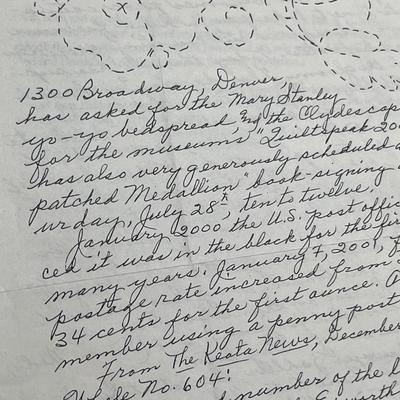 1300 Broadway, Denver,
has asked for the Mary Stanley
yo-yo bedspread, and the Clydescap
for the museums' "Quiltspeak 20
has also very generously scheduled a
patched Medallion" book-signing
urday, July 28th, ten to twelve.
January 2000 the U.S. post offic
ced it was in the black for the fir
many years. January 7, 2001, f
postage rate increased from
34 cents for the first ounce. A
member using a penny post
From The Keota News, December
Whole No. 604:
number of the l